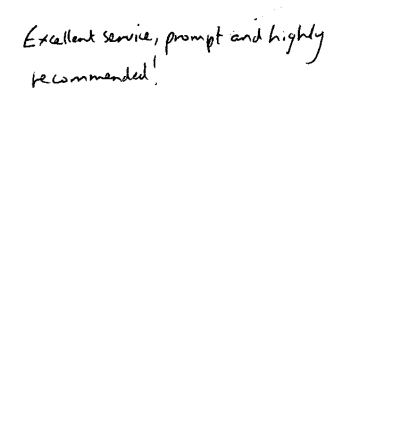 Excellent service, prompt and highly
recommended!